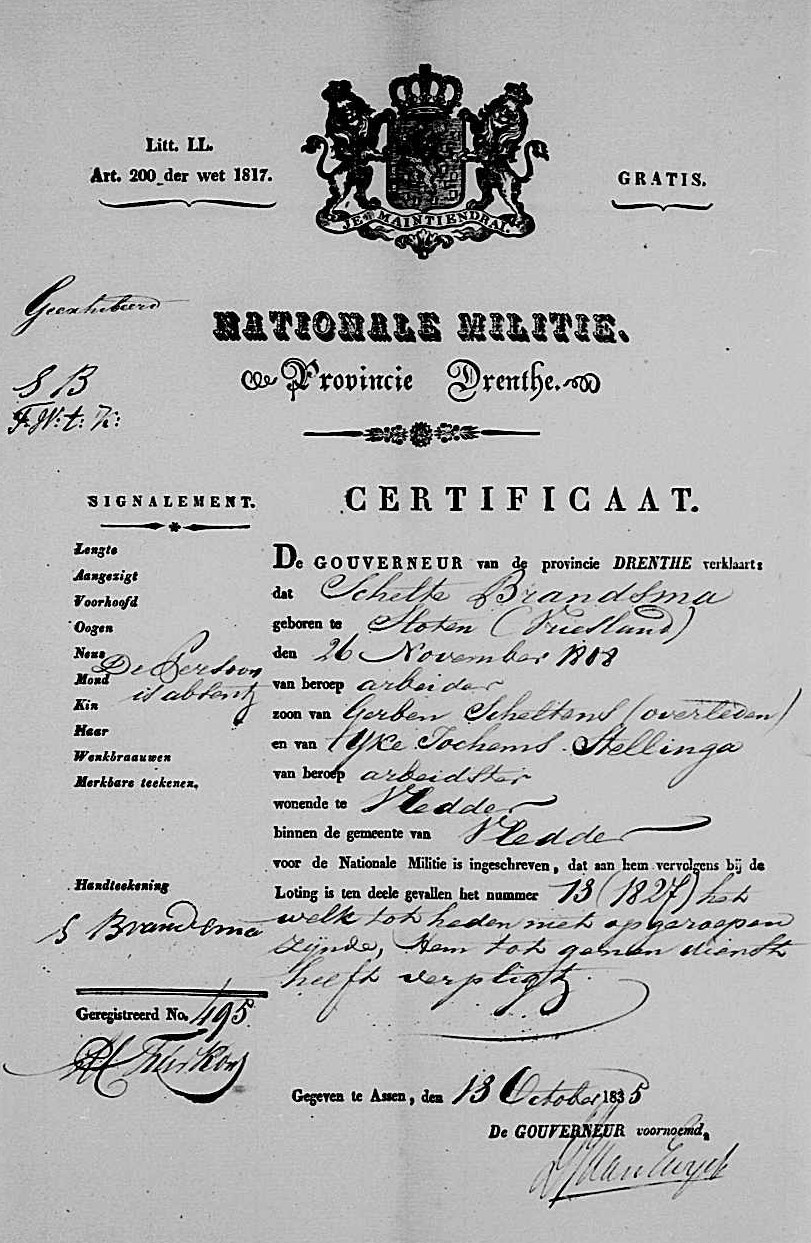 Litt. LL.
Art. 200 der wet 1817.
GRATIS.
JE MAINTIENDRAI.
Geexhibeerd
S B
F. W: t: K:
NATIONALE MILITIE.
Provincie Drenthe.
SIGNALEMENT.
Lengte
Aangezigt
Voorhoofd
Oogen
Neus
Mond
Kin
Haar
Wenkbraauwen
Merkbare teekenen.
De Persoon
is absent
Handteekening
S Brandsma
Geregistreerd No. 495.
CERTIFICAAT.
De GOUVERNEUR van de provincie DRENTHE verklaart:
dat Schelte Brandsma
geboren te Sloten (Vriesland)
den 26 November 1808
van beroep arbeider
zoon van Gerben Scheltens (overleden)
en van IJke Jochems Stellinga
van beroep arbeidster
wonende te Vledder
binnen de gemeente van Vledder
voor de Nationale Militie is ingeschreven, dat aan hem vervolgens bij de
Loting is ten deele gevallen het nummer 13 (1827) het
welk tot heden niet opgeroepen
zijnde, Hem tot geenen dienst
heeft verpligt
Gegeven te Assen, den 13 October 1835
De GOUVERNEUR voornoemd,